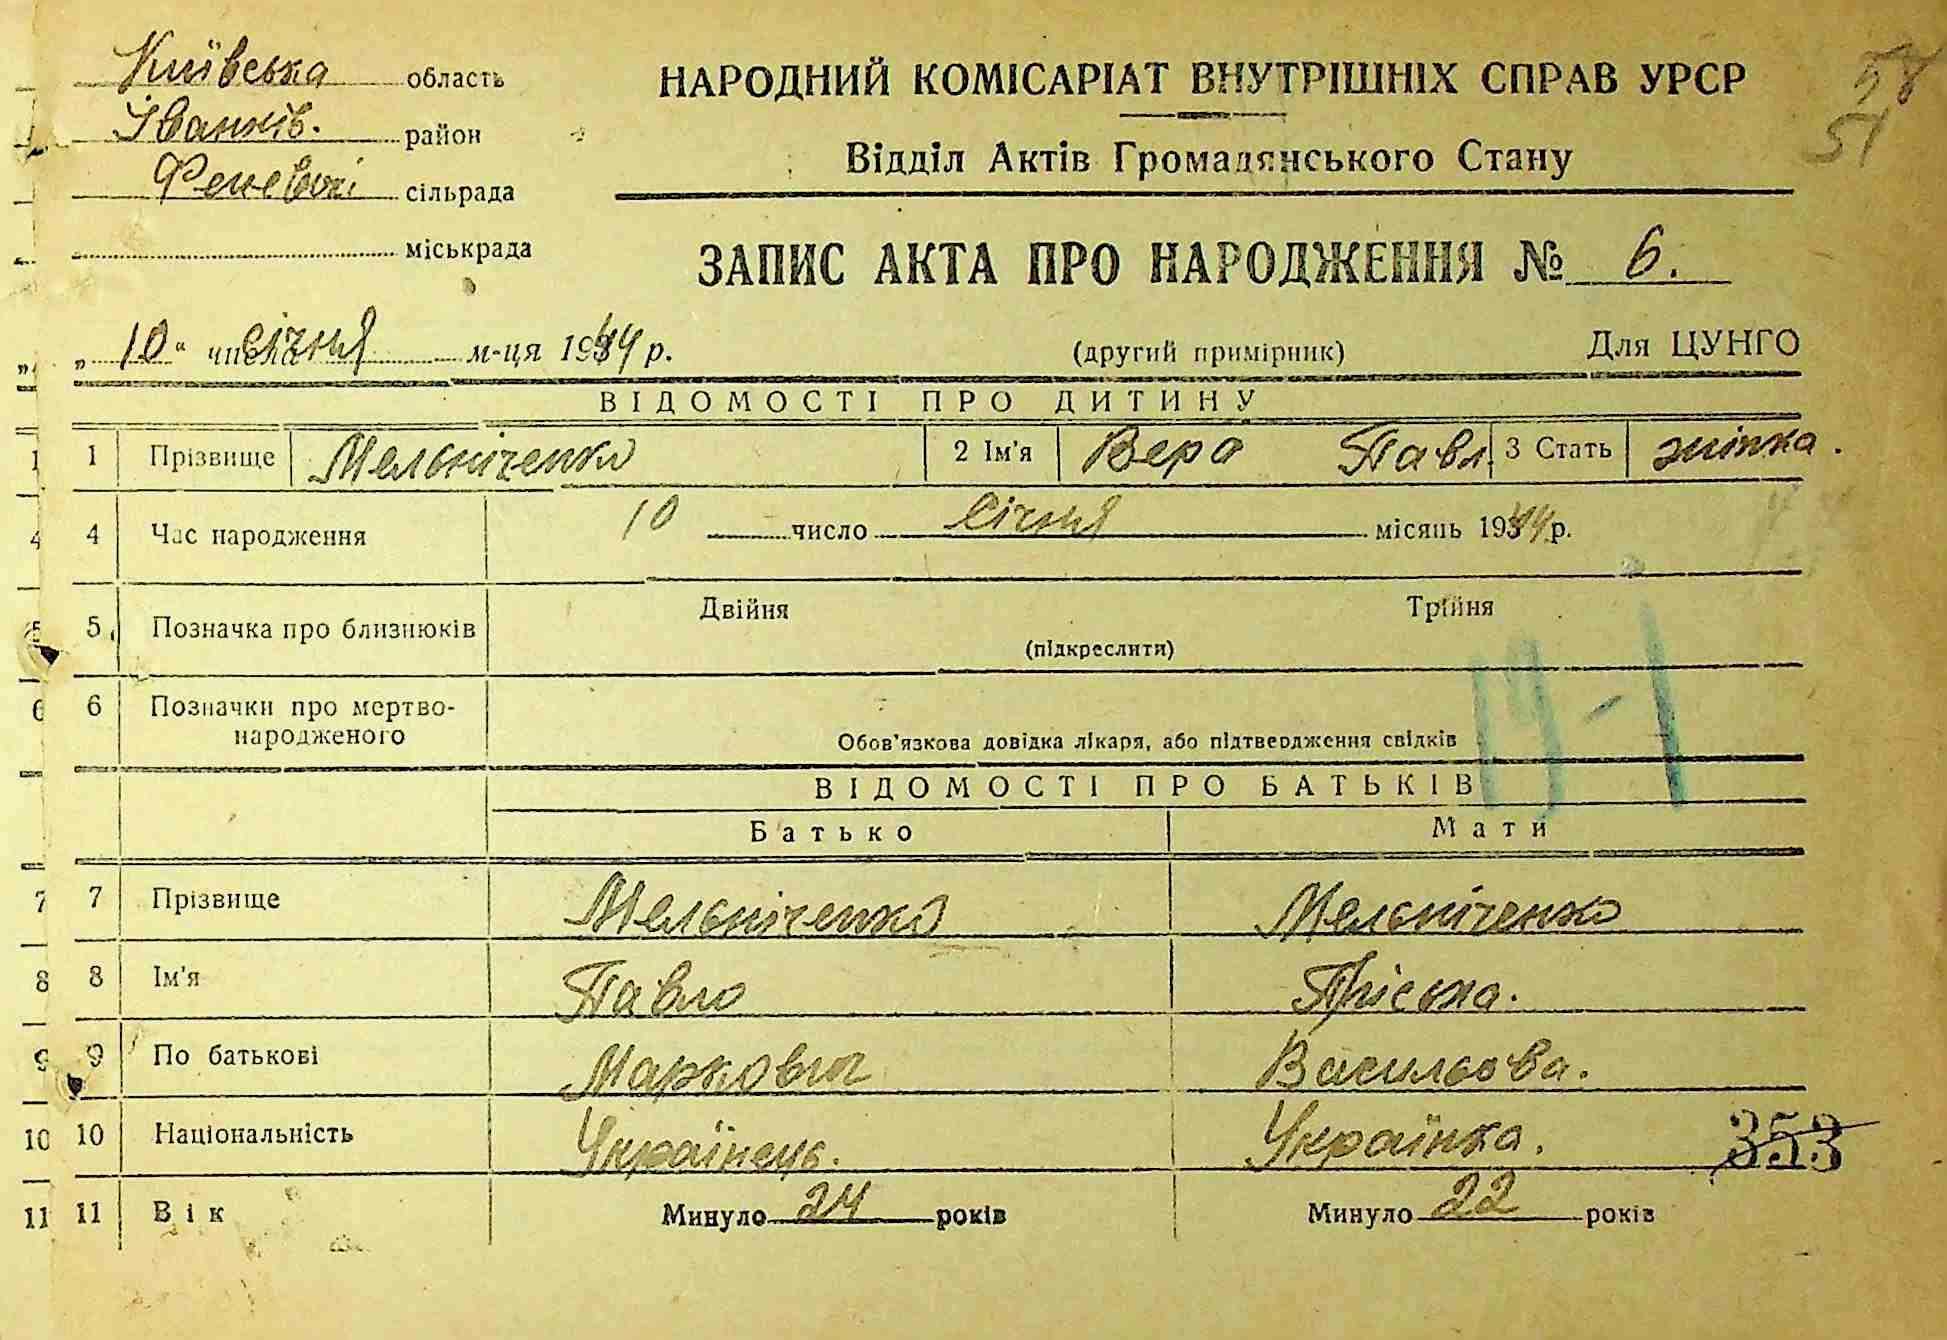 Київська область
Іванків. район
Феневочі сільрада
міськрада
НАРОДНИЙ КОМІСАРІАТ ВНУТРІШНІХ СПРАВ УРСР
58
51
Відділ Актів Громадянського Стану
ЗАПИС АКТА ПРО НАРОДЖЕННЯ № 6.
„10“ числа січня м-ця 1944 р.
(другий примірник)
Для ЦУНГО
ВІДОМОСТІ ПРО ДИТИНУ
1 Прізвище Мельніченко 2 Ім'я Вера Павл. 3 Стать жінка.
4 Час народження 10 число січня місяць 1944 р.
5 Позначка про близнюків Двійня Трійня
(підкреслити)
6 Позначки про мертво-
народженого
Обов'язкова довідка лікаря, або підтвердження свідків
ВІДОМОСТІ ПРО БАТЬКІВ
Батько Мати
7 Прізвище Мельніченко Мельніченко
8 Ім'я Павло Пріська.
9 По батькові Маркович Васильова.
10 Національність Українець. Українка.
353
11 Вік Минуло 24 років Минуло 22 років